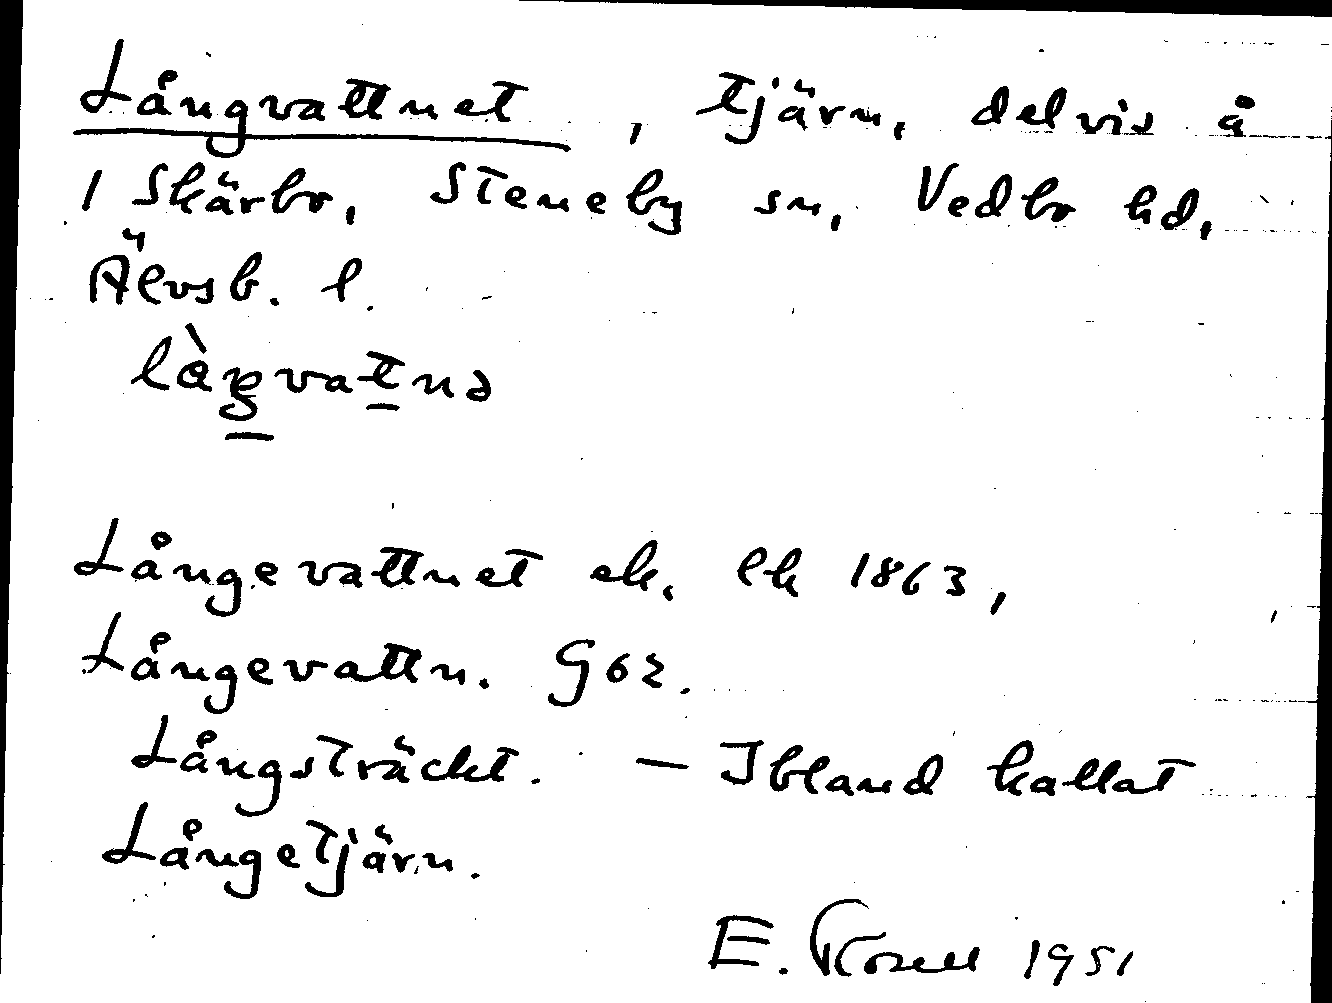 Långvattnet, tjärn, delvis å
1 Skärbo, Steneby sn, Vedbo hd,
Älvsb. l.
Långevattnet ek. lk 1863,
Långevattn. G62.
Långsträckt. — Ibland kallat
Långetjärn.
E. 1951